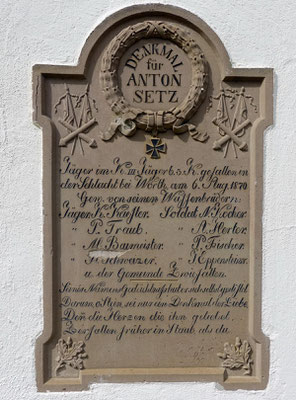 DENKMAL
für
ANTON
SETZ
Jäger im K. III Jäger b. 3. K. gefallen in
der Schlacht bei Wörth am 6. Aug. 1870
Gew. von seinen Waffenbrüdern
Jäger K. Soldat M. Köcher
" P. Traub " A. Herter
" M. Baumeister " P. Fischer
" " J. Eppenduzer
u. der Gemeinde Zwiefalten
Seinen Namen
Darum, o Stein, sei nur ein Denkmal der Liebe
Den die Herzen die ihn geliebet
Zerfallen früher in Staub als du